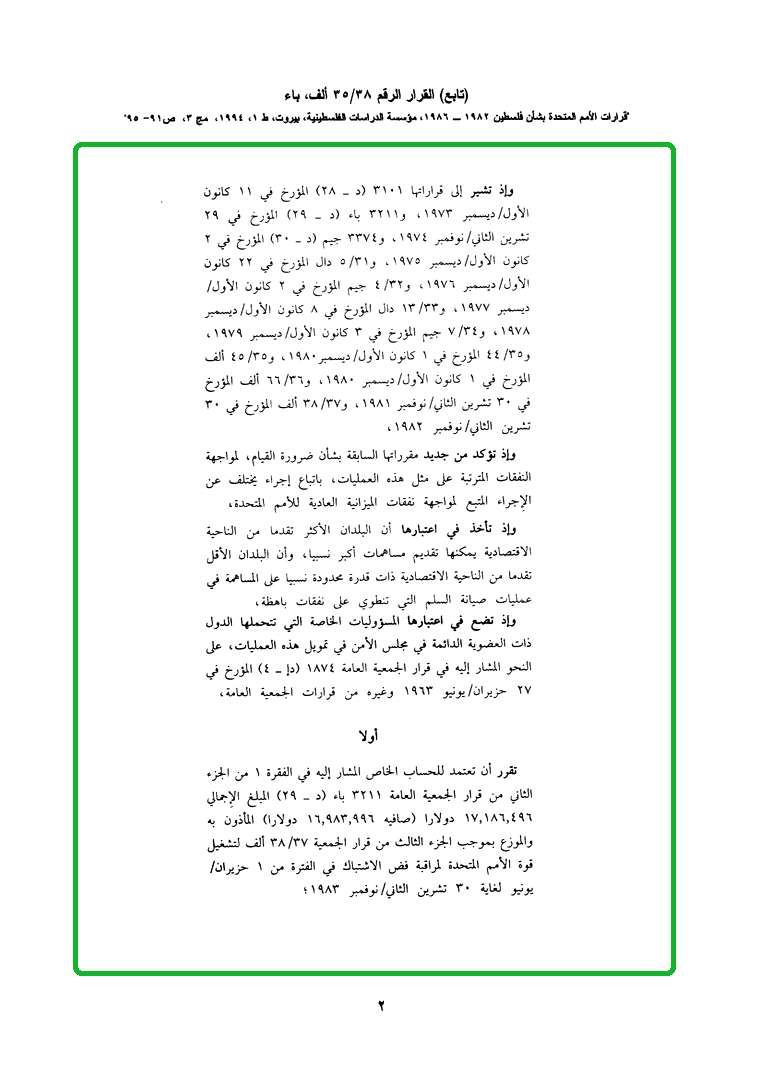 (تابع) القرار الرقم ٣٥/٣٨ ألف، باء
"قرارات الأمم المتحدة بشأن فلسطين ١٩٨٢ – ١٩٨٦، مؤسسة الدراسات الفلسطينية، بيروت، ط ١، ١٩٩٤، مج ٣، ص٩١- ٩٥"
وإذ تشير إلى قراراتها ٣١٠١ (د – ٢٨) المؤرخ في ١١ كانون
الأول/ديسمبر ١٩٧٣، و٣٢١١ باء (د – ٢٩) المؤرخ في ٢٩
تشرين الثاني/نوفمبر ١٩٧٤، و٣٣٧٤ جيم (د – ٣٠) المؤرخ في ٢
كانون الأول/ديسمبر ١٩٧٥، و٥/٣١ دال المؤرخ في ٢٢ كانون
الأول/ديسمبر ١٩٧٦، و٤/٣٢ جيم المؤرخ في ٢ كانون الأول/
ديسمبر ١٩٧٧، و١٣/٣٣ دال المؤرخ في ٨ كانون الأول/ديسمبر
١٩٧٨، و٧/٣٤ جيم المؤرخ في ٣ كانون الأول/ديسمبر ١٩٧٩،
و٤٤/٣٥ المؤرخ في ١ كانون الأول/ديسمبر١٩٨٠، و٤٥/٣٥ ألف
المؤرخ في ١ كانون الأول/ديسمبر ١٩٨٠، و٦٦/٣٦ ألف المؤرخ
في ٣٠ تشرين الثاني/نوفمبر ١٩٨١، و٣٨/٣٧ ألف المؤرخ في ٣٠
تشرين الثاني/نوفمبر ١٩٨٢،
وإذ تؤكد من جديد مقرراتها السابقة بشأن ضرورة القيام، لمواجهة
النفقات المترتبة على مثل هذه العمليات، باتباع إجراء يختلف عن
الإجراء المتبع لمواجهة نفقات الميزانية العادية للأمم المتحدة،
وإذ تأخذ في اعتبارها أن البلدان الأكثر تقدما من الناحية
الاقتصادية يمكنها تقديم مساهمات أكبر نسبيا، وأن البلدان الأقل
تقدما من الناحية الاقتصادية ذات قدرة محدودة نسبيا على المساهمة في
عمليات صيانة السلم التي تنطوي على نفقات باهظة،
وإذ تضع في اعتبارها المسؤوليات الخاصة التي تتحملها الدول
ذات العضوية الدائمة في مجلس الأمن في تمويل هذه العمليات، على
النحو المشار إليه في قرار الجمعية العامة ١٨٧٤ (دإ – ٤) المؤرخ في
٢٧ حزيران/يونيو ١٩٦٣ وغيره من قرارات الجمعية العامة،
أولا
تقرر أن تعتمد للحساب الخاص المشار إليه في الفقرة ١ من الجزء
الثاني من قرار الجمعية العامة ٣٢١١ باء (د – ٢٩) المبلغ الإجمالي
١٧,١٨٦,٤٩٦ دولارا (صافيه ١٦,٩٨٣,٩٩٦ دولارا) المأذون به
والموزع بموجب الجزء الثالث من قرار الجمعية ٣٨/٣٧ ألف لتشغيل
قوة الأمم المتحدة لمراقبة فض الاشتباك في الفترة من ١ حزيران/
يونيو لغاية ٣٠ تشرين الثاني/نوفمبر ١٩٨٣؛
٢